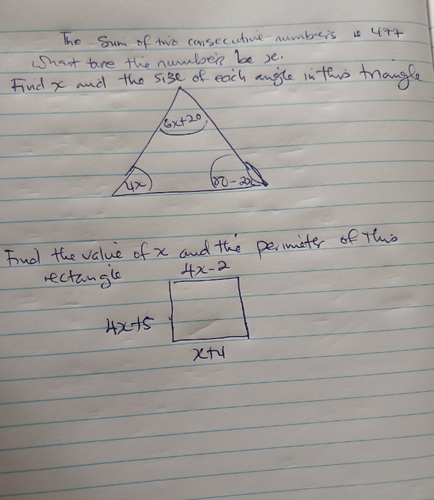 The sum of two consecutive numbers is 477
what are the numbers be x.
Find x and the size of each angle in this triangle
6x+20
4x
Find the value of x and the perimeter of this
rectangle
4x-2
4x+5
x+4